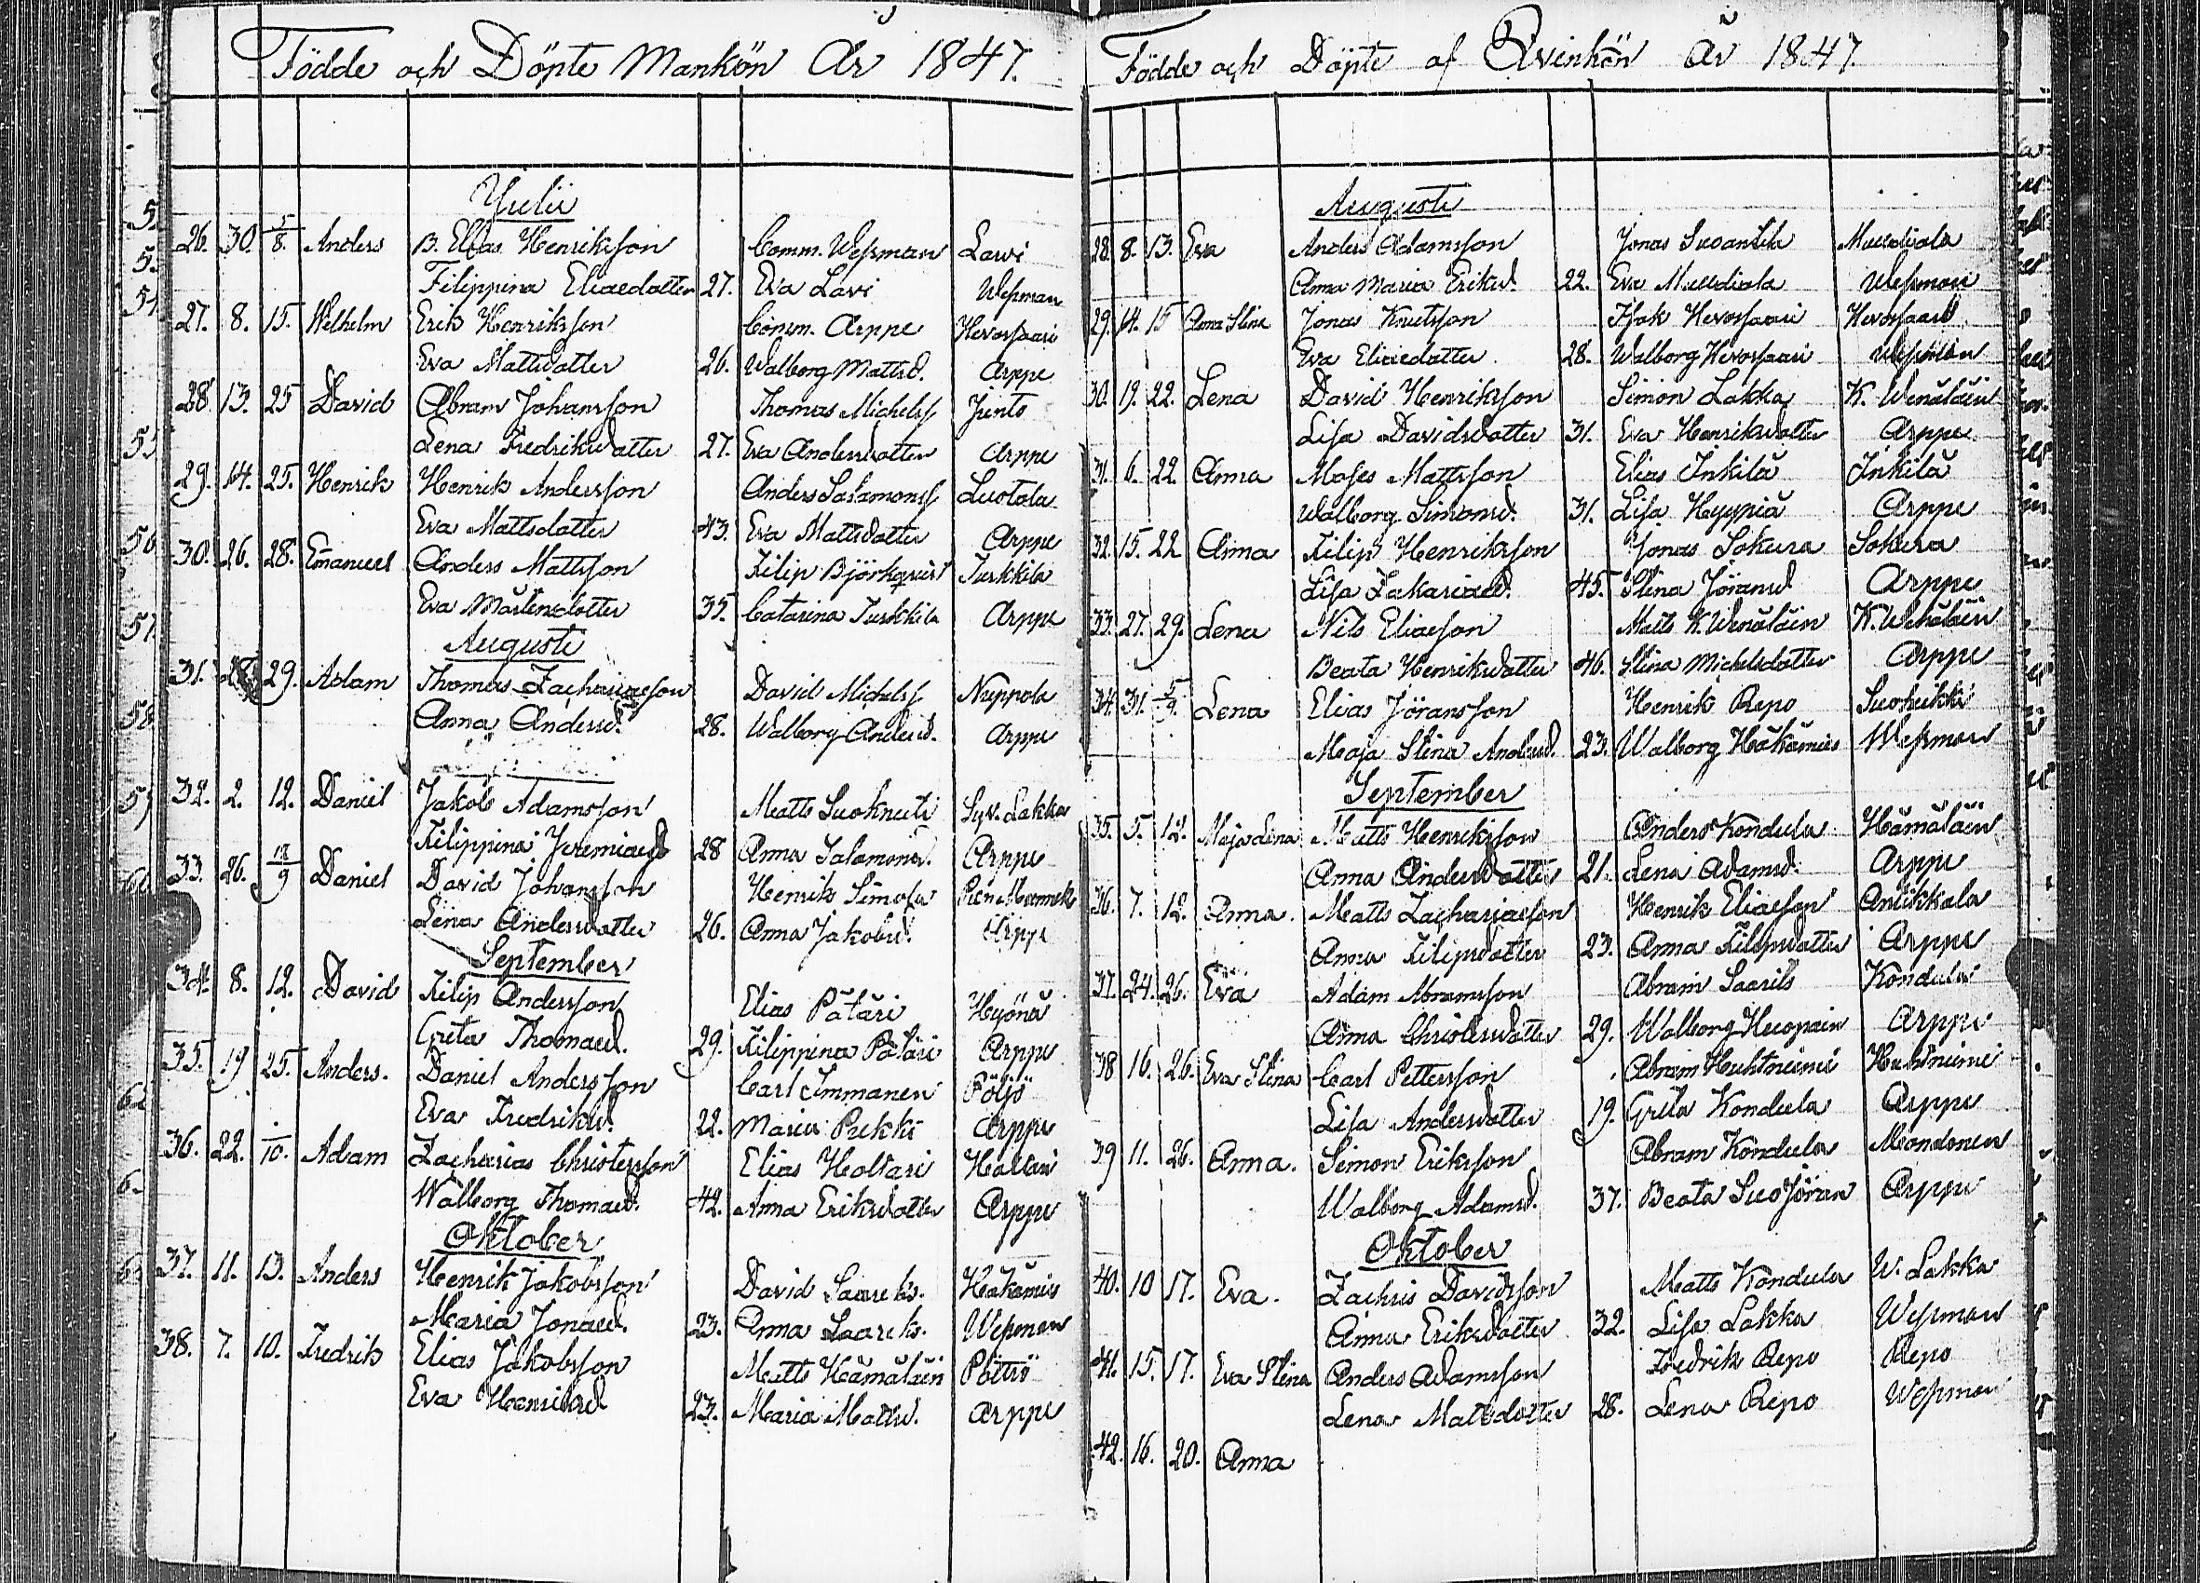 Födde och Döpte Mankön År 1847.
Julii
26. 30. 5/8. Anders B. Elias Henriksson Comm. Wessman Lavi
Filippina Eliaedotter 27. Eva Lavi Wessman
27. 8. 15. Wilhelm Erik Henriksson Comm. Arppe Hevossaari
Eva Mattsdotter 26. Walborg Mattsd. Arppe
28. 13. 25 David Abram Johansson Thomas Michelss Junto
Lena Fredriksdotter 27. Eva Andersdotter Arppe
29. 14. 25. Henrik Henrik Andersson Anders Salamonss Luotola
Eva Mattsdotter 43. Eva Mattsdotter Arppe
30. 26. 28. Emanuel Anders Mattsson Filip Björkqvist Turkkila
Eva Mårtensdotter 35. Catarina Turkkila Arppe
Augusti
31. 29. Adam Thomas Zachariaeson David Michelss Nuppola
Anna Andersd. 28. Walborg Andersd. Arppe
32. 2. 12. Daniel Jakob Adamsson Matts Suoknuti Syv. Lakka
Filippina Jeremiaed 28 Anna Salamonsd. Arppe
33. 26. 12/9 Daniel David Johansson Henrik Simola
Lena Andersdotter 26. Anna Jakobsd. Arppe
September
34. 8. 12. David Filip Andersson Elias Pätäri Hyönä
Greta Thomaed. 29. Filippina Pätäri Arppe
35. 19 25. Anders. Daniel Andersson Carl Immanen Pöljö
Eva Fredriksd. 22. Maria Pukki Arppe
36. 22. /10. Adam Zacharias Christersson Elias Holtari Holtari
Walborg Thomaed. 42. Anna Eriksdotter Arppe
Oktober
37. 11. 13. Anders Henrik Jakobsson David Saareks. Häkämies
Maria Jonaed. 23. Anna Saareks. Wessman
38. 7. 10. Fredrik Elias Jakobsson Matts Hämäläin Pöttrö
Eva Henriksd 23. Maria Mattsd. Arppe
Födde och Döpte af Qvinkön År 1847.
Augusti
28. 8. 13. Eva Anders Adamsson Jonas Suoanttila Muukiala
Anna Maria Eriksd. 22. Eva Muukiala Wessman
29. 14. 15 Anna Stina Jonas Knutsson Isak Hevossaari Hevossaari
Eva Eliaedotter 28. Walborg Hevossaari Wessman
30. 19. 22. Lena David Henriksson Simon Lakka K. Wenäläin
Lisa Davidsdotter 31. Eva Henriksdotter Arppe
31. 6. 22. Anna Moses Mattsson Elias Inkilä Inkilä
Walborg Simonsd. 31. Lisa Hyypiä Arppe
32. 15. 22 Anna Filip Henriksson Jonas Sokura Sokura
Lisa Zakariaed. 45. Stina Jöransd Arppe
33. 27. 29. Lena Nils Eliaeson Matts K. Wenäläin K. Wenäläin
Beata Henriksdotter 46. Stina Michelsdotter Arppe
34. 31. 5/9. Lena Elias Jöransson Henrik Repo Suohukki
Maja Stina Andersd. 23. Walborg Häkämies Wessman
September
35. 5. 12. Majadena Matts Henriksson Anders Kondula Hämäläin
Anna Andersdotter 21. Lena Adamsd. Arppe
36. 7. 12. Anna. Matts Zachariaeson Henrik Eliaeson Antikkala
Anna Filipsdotter 23. Anna Filipsdotter Arppe
37. 24. 26. Eva Adam Abramsson Abram Saarils Kondula
Anna Christersdotter 29. Walborg Huopain Arppe
38 16. 26. Eva Stina Carl Pettersson Abram Huhtniemi Huhtniemi
Lisa Andersdotter 19. Greta Kondula Arppe
39 11. 26. Anna. Simon Eriksson Abram Kondula Mondonen
Walborg Adamsd. 37. Beata Suojöran Arppe
Oktober
40. 10 17. Eva. Zachris Davidsson Matts Kondula W. Lakka
Anna Eriksdotter 32. Lisa Lakka Wessman
41. 15. 17. Eva Stina Anders Adamsson Fredrik Repo Repo
Lena Mattsdotter 28. Lena Repo Wessman
42. 16. 20. Anna